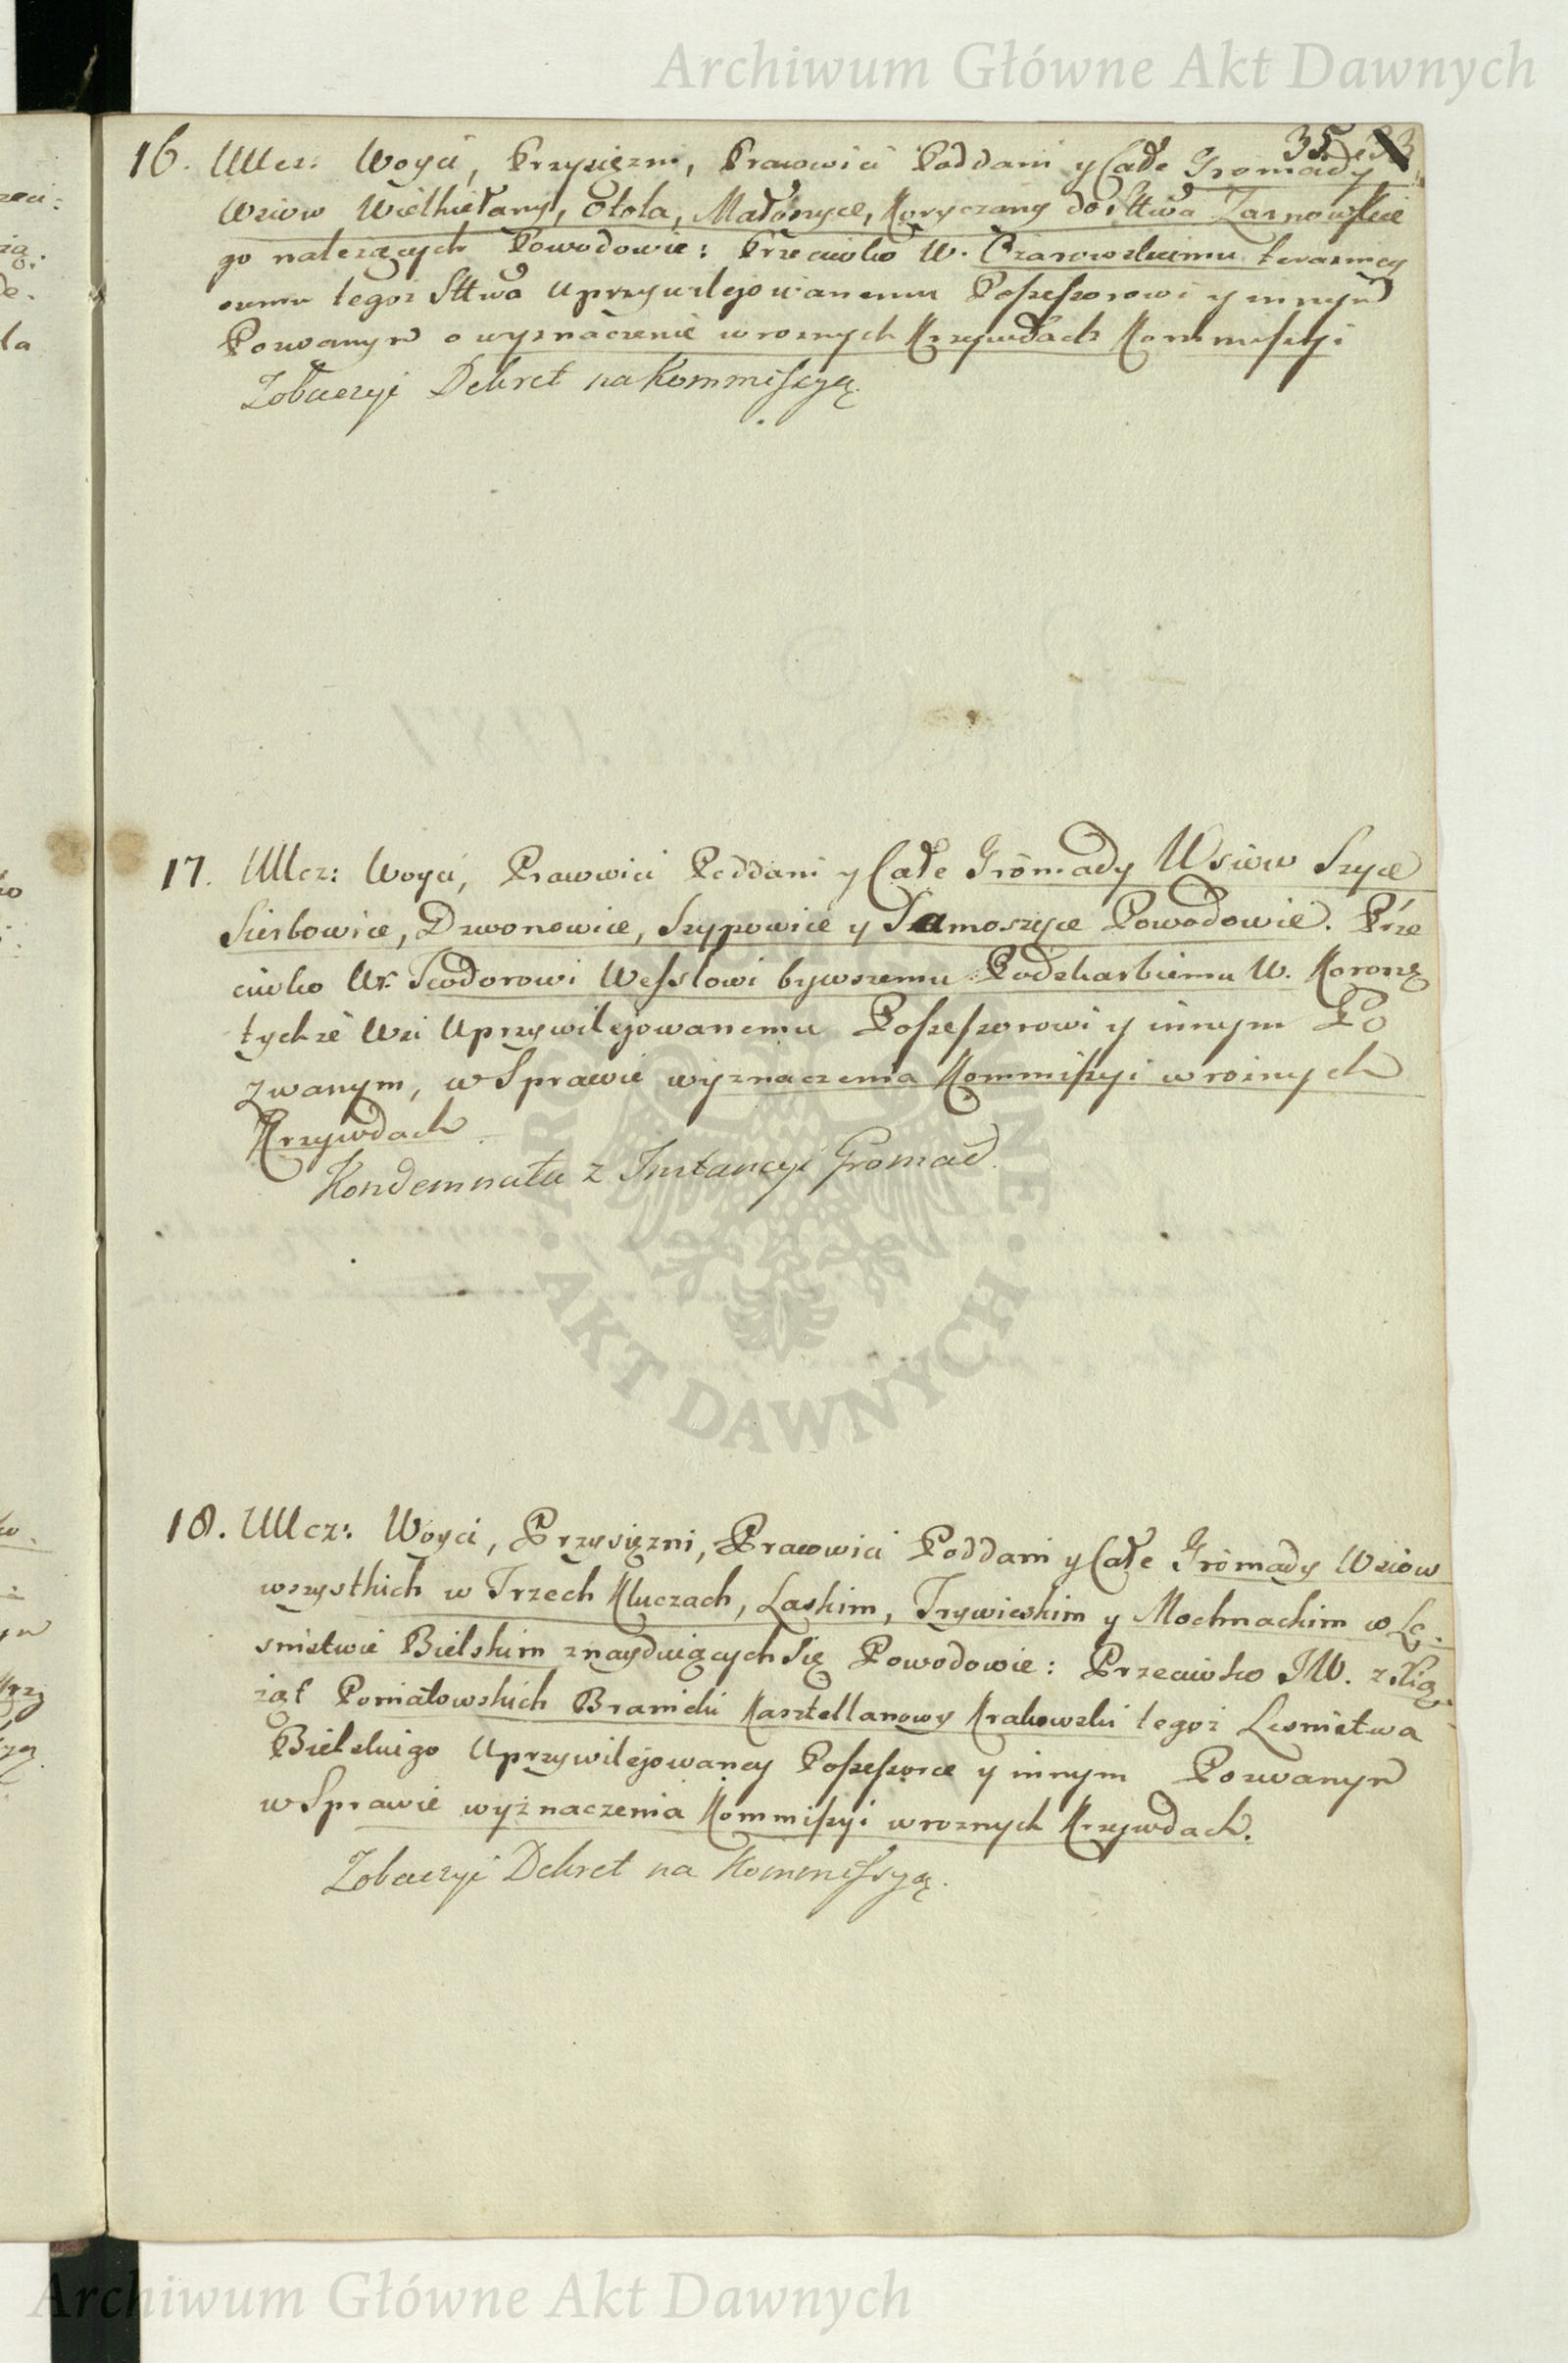 Archiwum Główne Akt Dawnych
35 33
16. Ucz: Woyci, Przysięzni, Prawowici Poddani y Całe Gromady
Wsiow Wielkiełany, Otola, Małoszyce, Koryczany do Sttwa Zarnowskie
go należących Powodowie: Przeciwko W. Czarowskiemu terazniey
szemu tegoz Sttwa Uprzywilejowanemu Possessorowi y innym
Pozwanym o wyznaczenie w roznych Krzywdach Kommissyi
Zobaczyć Dekret na Kommissyą.
17. Ucz: Woyci, Prawowici Poddani y Całe Gromady Wsiow Szyce
Sierbowice, Dzwonowice, Szypowice y Samoszyce Powodowie. Prze
ciwko Ur. Teodorowi Wesslowi bywszemu Podskarbiemu W. Koronę
tychże Wsi Uprzywilejowanemu Possessorowi y innym Po
zwanym, w Sprawie wyznaczenia Kommissyi w rożnych
Krzywdach.
Kondemnata z Instancyi Gromad.
18. Ucz: Woyci, Przysięzni, Prawowici Poddani y Całe Gromady Wsiow
wszystkich w Trzech Kluczach, Laskim, Trywieskim y Mochnackim w Le
snictwie Bielskim znayduiących się Powodowie: Przeciwko JW. z Xią
żąt Poniatowskich Branicki Kasztellanowy Krakowski tegoż Lesnictwa
Bielskiego Uprzywilejowaney Possessorce y innym Pozwanym
w Sprawie wyznaczenia Kommissyi w roznych Krzywdach.
Zobaczyć Dekret na Kommissyą.
ARCHIWUM GŁÓWNE · AKT DAWNYCH ·
Archiwum Główne Akt Dawnych